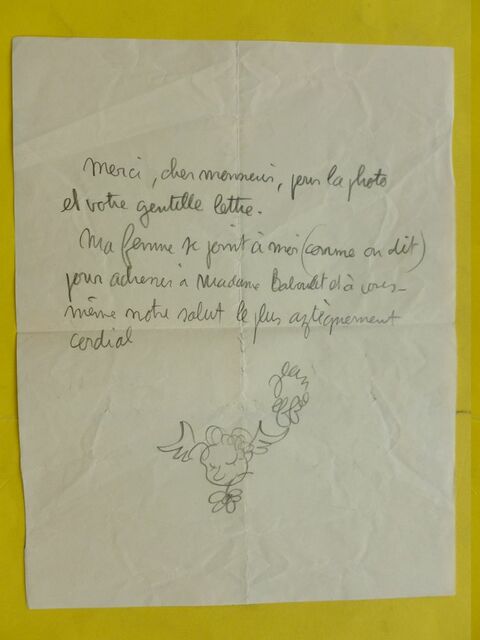 Merci, cher monsieur, pour la photo
et votre gentille lettre.
Ma femme se joint à moi (comme on dit)
pour adresser à Madame Baboulet et à vous-
même notre salut le plus aztèquement
cordial
Jean
Effel